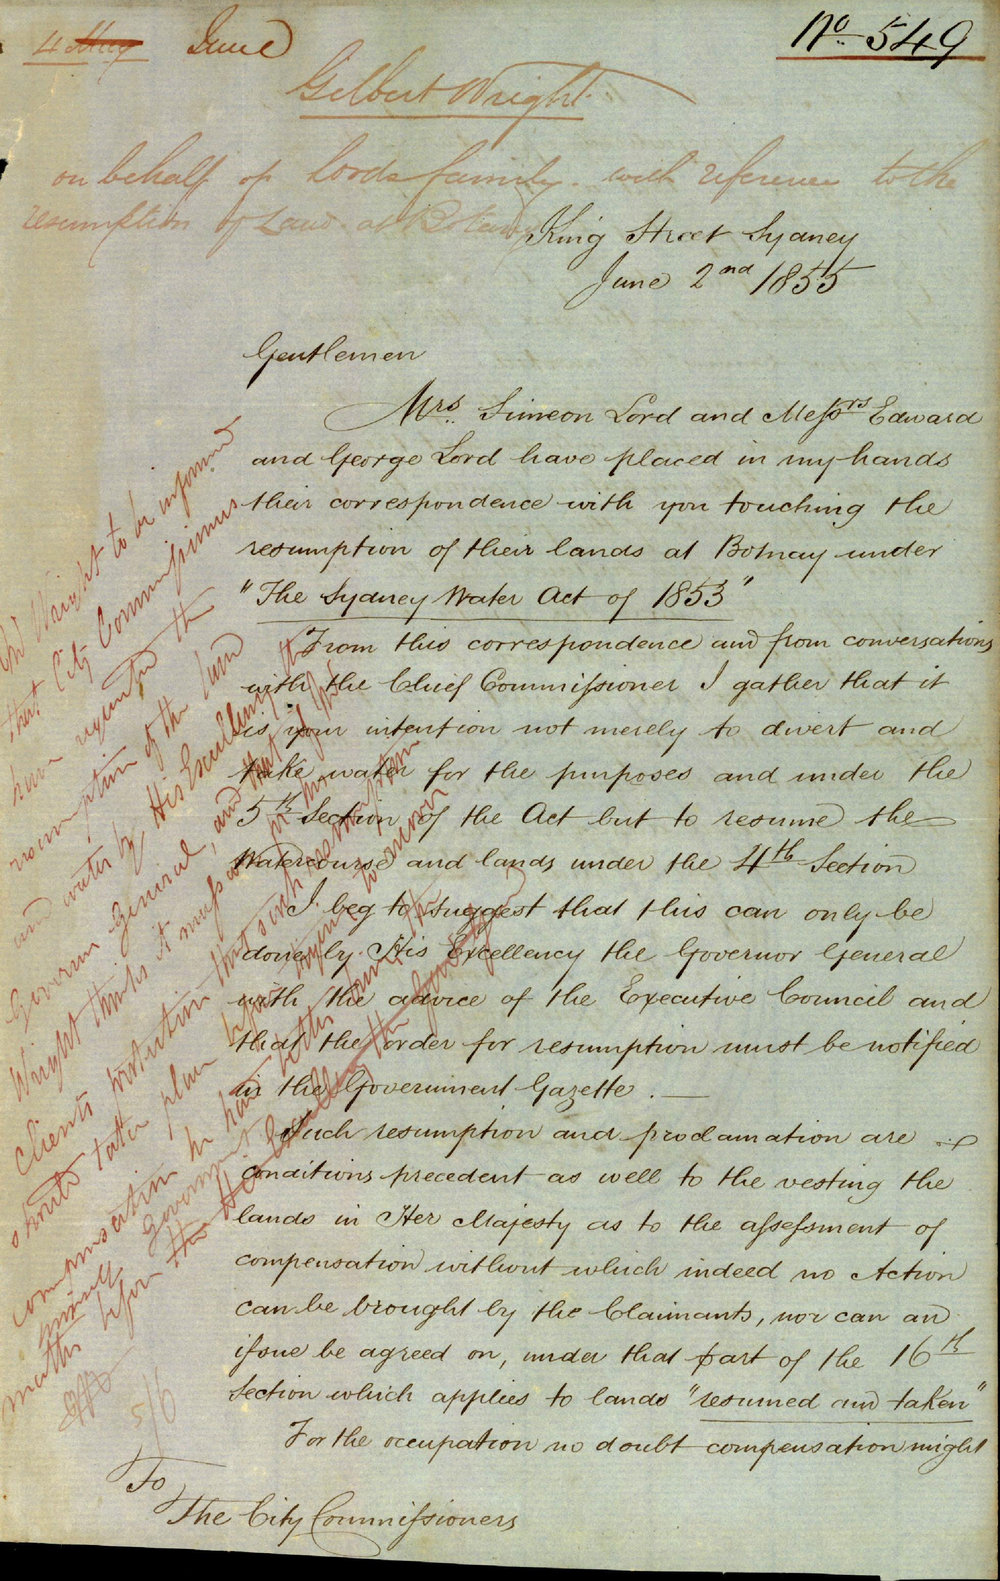 4 May June
No 549
Gilbert Wright
on behalf of Lords family with reference to the
resumption of Land at Botany
King Street Sydney
June 2nd 1855
Gentlemen
Mrs. Simeon Lord and Messrs Edward
and George Lord have placed in my hands
their correspondence with you touching the
resumption of their lands at Botnay under
"The Sydney Water Act of 1853"
From this correspondence and from conversations
with the Chief Commissioner I gather that it
is your intention not merely to divert and
take water for the purposes and under the
5th Section of the Act but to resume the
Watercourse and lands under the 4th Section
I beg to suggest that this can only be
done by His Excellency the Governor General
with the advice of the Executive Council and
that the order for resumption must be notified
in the Government Gazette.
Such resumption and proclamation are
conditions precedent as well to the vesting the
lands in Her Majesty as to the assessment of
compensation without which indeed no Action
can be brought by the Claimants, nor can an
issue be agreed on, under that part of the 16th
Section which applies to lands "resumed and taken"
For the occupation no doubt compensation might
To
The City Commissioners
Mr Wright to be informed
that City Commissioners
have requested the
resumption of the land
and water by His Excellency the
Governor General, and that if Mr
Wright thinks it necessary
clients protection that such resumption
should take place before
compensation he had better
Government
matter before the
5/6